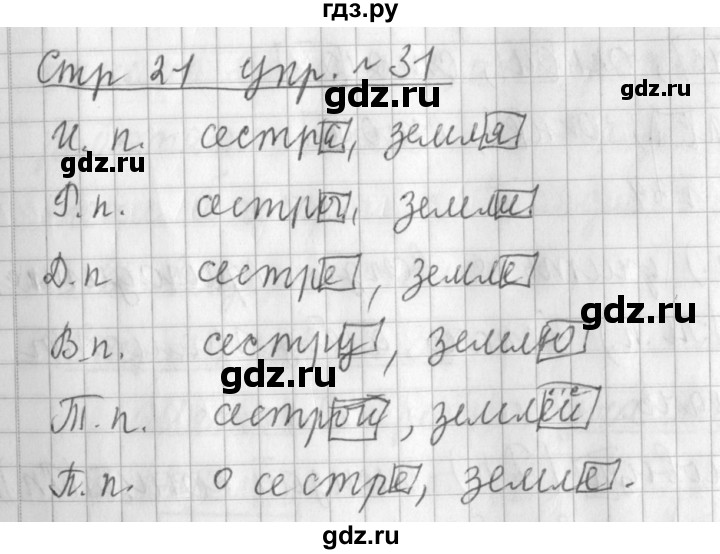 гдз.ру
Стр 21 упр. № 31
gdz.ru
gdz.ru
И. п. сестра, земля
gdz.ru
Р.п. сестры, земли
gdz.ru
Д.п сестре, земле
gdz.ru
В.п. сестру, землю
gdz.ru
Т.п. сестрой, землёй
П.п. о сестре, земле.
gdz.ru